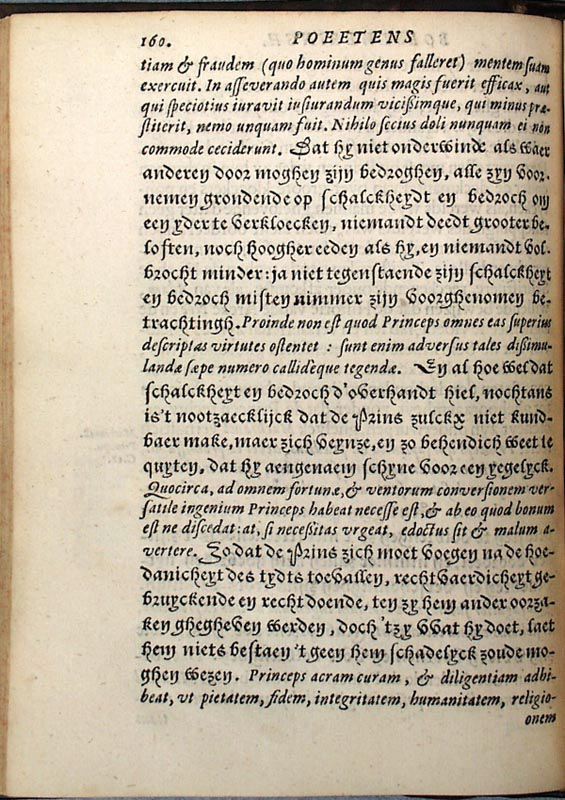 160. POEETENS
tiam & fraudem (quo hominum genus falleret) mentem suam
exercuit. In asseverando autem quis magis fuerit efficax, aut
qui speciotius iuravit iusiurandum vicißimque, qui minus præ-
stiterit, nemo unquam fuit. Nihilo secius doli nunquam ei non
commode ceciderunt. Dat hy niet onderwindt als waer
anderen door moghen zijn bedroghen, alle zyn voor-
nemen grondende op schalckheydt en bedroch om
een yder te verkloecken, niemandt deedt grooter be-
loften, noch hoogher eeden als hy, en niemandt vol-
brocht minder: ja niet tegenstaende zijn schalckheyt
en bedroch misten nimmer zijn voorghenomen be-
trachtingh. Proinde non est quod Princeps omnes eas superius
descriptas virtutes ostentet : sunt enim adversus tales dißimu-
landæ sæpe numero callidèque tegendæ. En al hoe wel dat
schalckheyt en bedroch d'overhandt hiel, nochtans
is't nootzaecklijck dat de Prins zulckx niet kund-
baer make, maer zich veynze, en zo behendich weet te
quyten, dat hy aengenaem schyne voor een yegelyck.
Quocirca, ad omnem fortunæ, & ventorum conversionem ver-
satile ingenium Princeps habeat necesse est, & ab eo quod bonum
est ne discedat: at, si necessitas urgeat, edoctus sit & malum a-
vertere. Zo dat de Prins zich moet voegen na de hoe-
danicheyt des tydts toevallen, rechtvaerdicheyt ge-
bruyckende en recht doende, ten zy hem ander oorza-
ken ghegheven werden, doch 'tzy wat hy doet, laet
hem niets bestaen 't geen hem schadelyck zoude mo-
ghen wezen. Princeps acram curam, & diligentiam adhi-
beat, vt pietatem, fidem, integritatem, humanitatem, religio-
onem